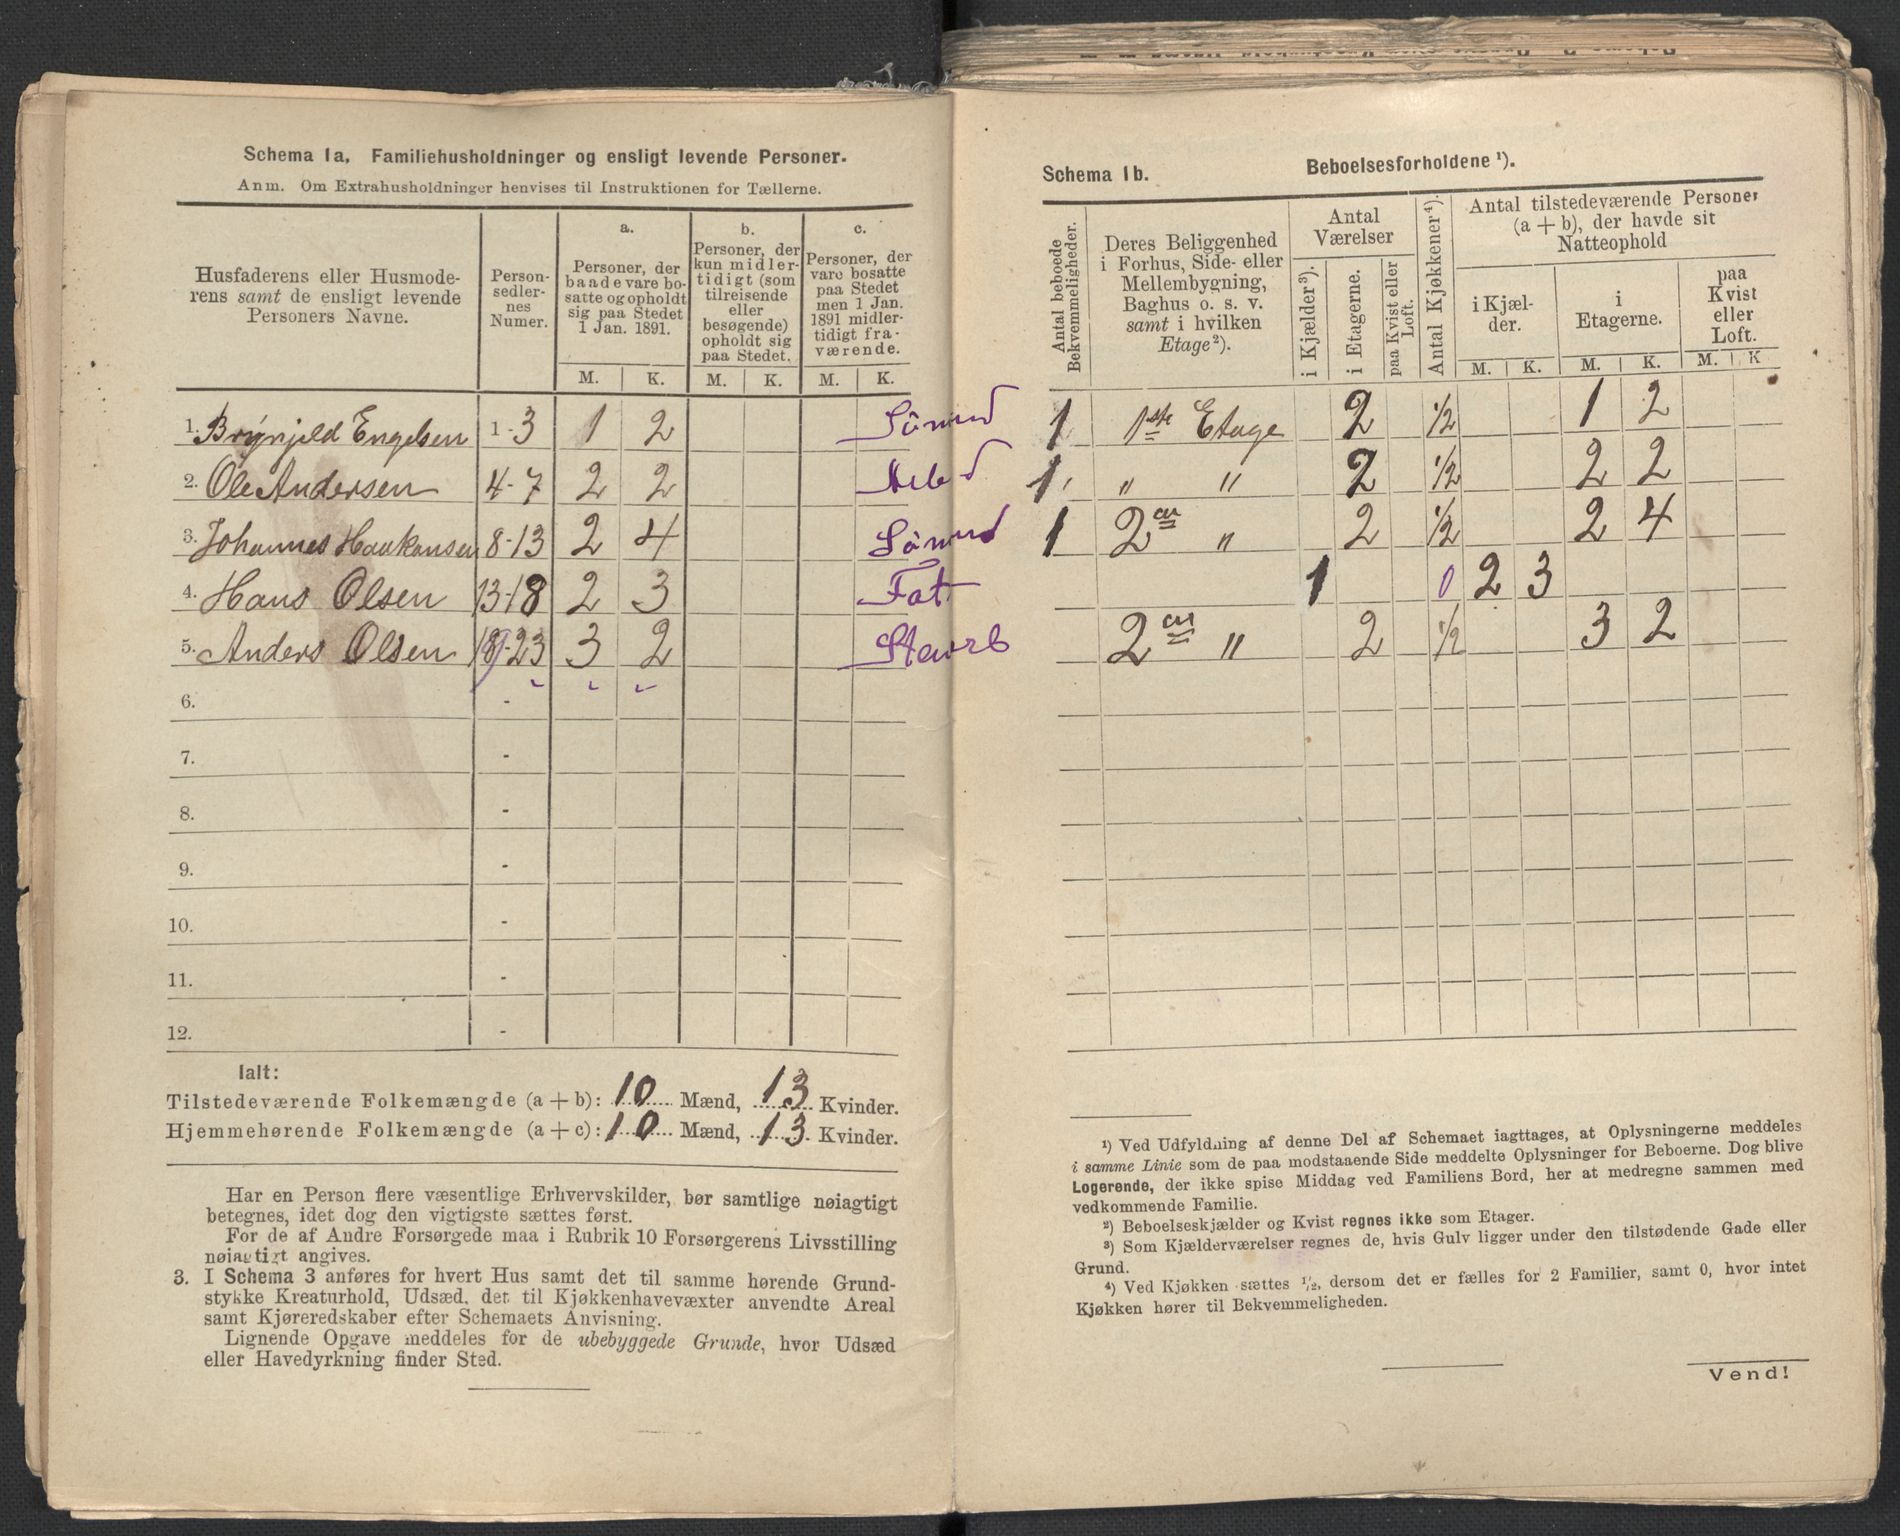 Schema 1a. Familiehusholdninger og ensligt levende Personer.
Anm. Om Extrahusholdninger henvises til Instruktionen for Tællerne.
Husfaderens eller Husmode-
rens samt de ensligt levende
Personers Navne.
Person-
sedler-
nes
Numer.
a.
Personer, der
baade vare bo-
satte og opholdt
sig paa Stedet
1 Jan. 1891.
b.
Personer, der
kun midler-
tidigt (som
tilreisende
eller
besøgende)
opholdt sig
paa Stedet.
c.
Personer, der
vare bosatte
paa Stedet
men 1 Jan.
1891 midler-
tidigt fra-
værende.
M. K. M. K. M. K.
1. Brynjeld Engelsen 1-3 1 2 Sömend
2. Ole Andersen 4-7 2 2 Arbd
3. Johannes Haakonsen 8-13 2 4 Sömend
4. Hans Olsen 13-18 2 3 Fat
5. Anders Olsen 19-23 3 2
6. -
7. -
8. -
9. -
10. -
11. -
12. -
Ialt:
Tilstedeværende Folkemængde (a + b): 10 Mænd, 13 Kvinder.
Hjemmehørende Folkemængde (a + c): 10 Mænd, 13 Kvinder.
Har en Person flere væsentlige Erhvervskilder, bør samtlige nøiagtigt
betegnes, idet dog den vigtigste sættes først.
For de af Andre Forsørgede maa i Rubrik 10 Forsørgerens Livsstilling
nøiagtigt angives.
3. I Schema 3 anføres for hvert Hus samt det til samme hørende Grund-
stykke Kreaturhold, Udsæd, det til Kjøkkenhavevæxter anvendte Areal
samt Kjøreredskaber efter Schemaets Anvisning.
Lignende Opgave meddeles for de ubebyggede Grunde, hvor Udsæd
eller Havedyrkning finder Sted.
Schema 1b. Beboelsesforholdene ¹).
Antal beboede
Bekvemmeligheder.
Deres Beliggenhed
i Forhus, Side- eller
Mellembygning,
Baghus o. s. v.
samt i hvilken
Etage²).
Antal
Værelser
i Kjælder³).
i Etagerne.
paa Kvist eller
Loft.
Antal Kjøkkener⁴).
Antal tilstedeværende Personer
(a + b), der havde sit
Natteophold
i Kjæl-
der.
i
Etagerne.
paa
Kvist
eller
Loft.
M. K. M. K. M. K
1 1ste Etage 2 1/2 1 2
1 " " 2 1/2 2 2
1 2en " 2 1/2 2 4
1 0 2 3
2en " 2 1/2 3 2
¹) Ved Udfyldning af denne Del af Schemaet iagttages, at Oplysningerne meddeles
i samme Linie som de paa modstaaende Side meddelte Oplysninger for Beboerne. Dog blive
Logerende, der ikke spise Middag ved Familiens Bord, her at medregne sammen med
vedkommende Familie.
²) Beboelseskjælder og Kvist regnes ikke som Etager.
³) Som Kjælderværelser regnes de, hvis Gulv ligger under den tilstødende Gade eller
Grund.
⁴) Ved Kjøkken sættes ½, dersom det er fælles for 2 Familier, samt 0, hvor intet
Kjøkken hører til Bekvemmeligheden.
Vend!